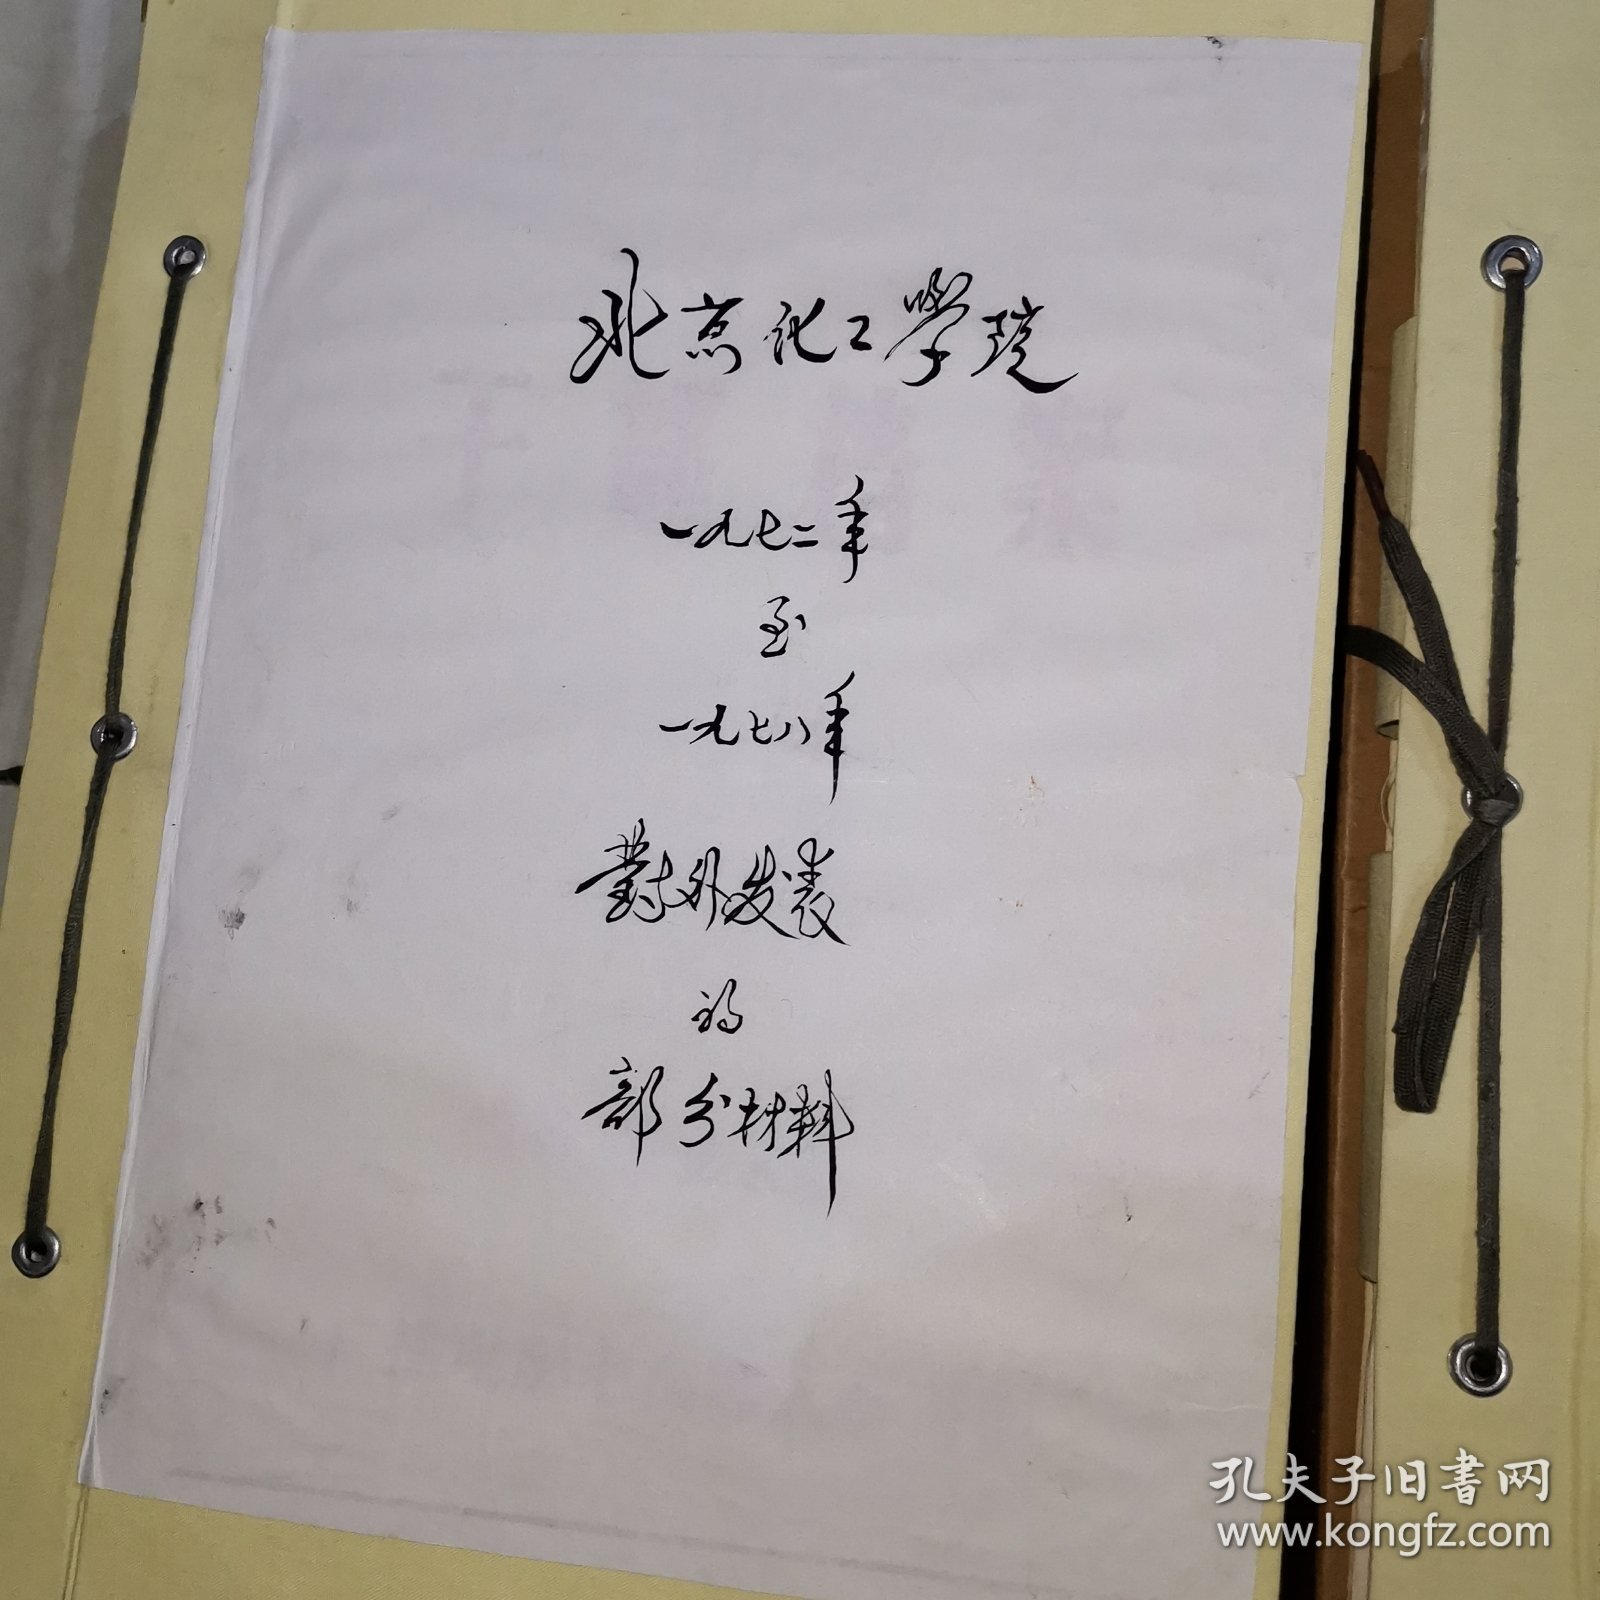 北京化工學院
一九七二年
至
一九七八年
對外发表
的
部分材料
孔夫子旧書网
www.kongfz.com